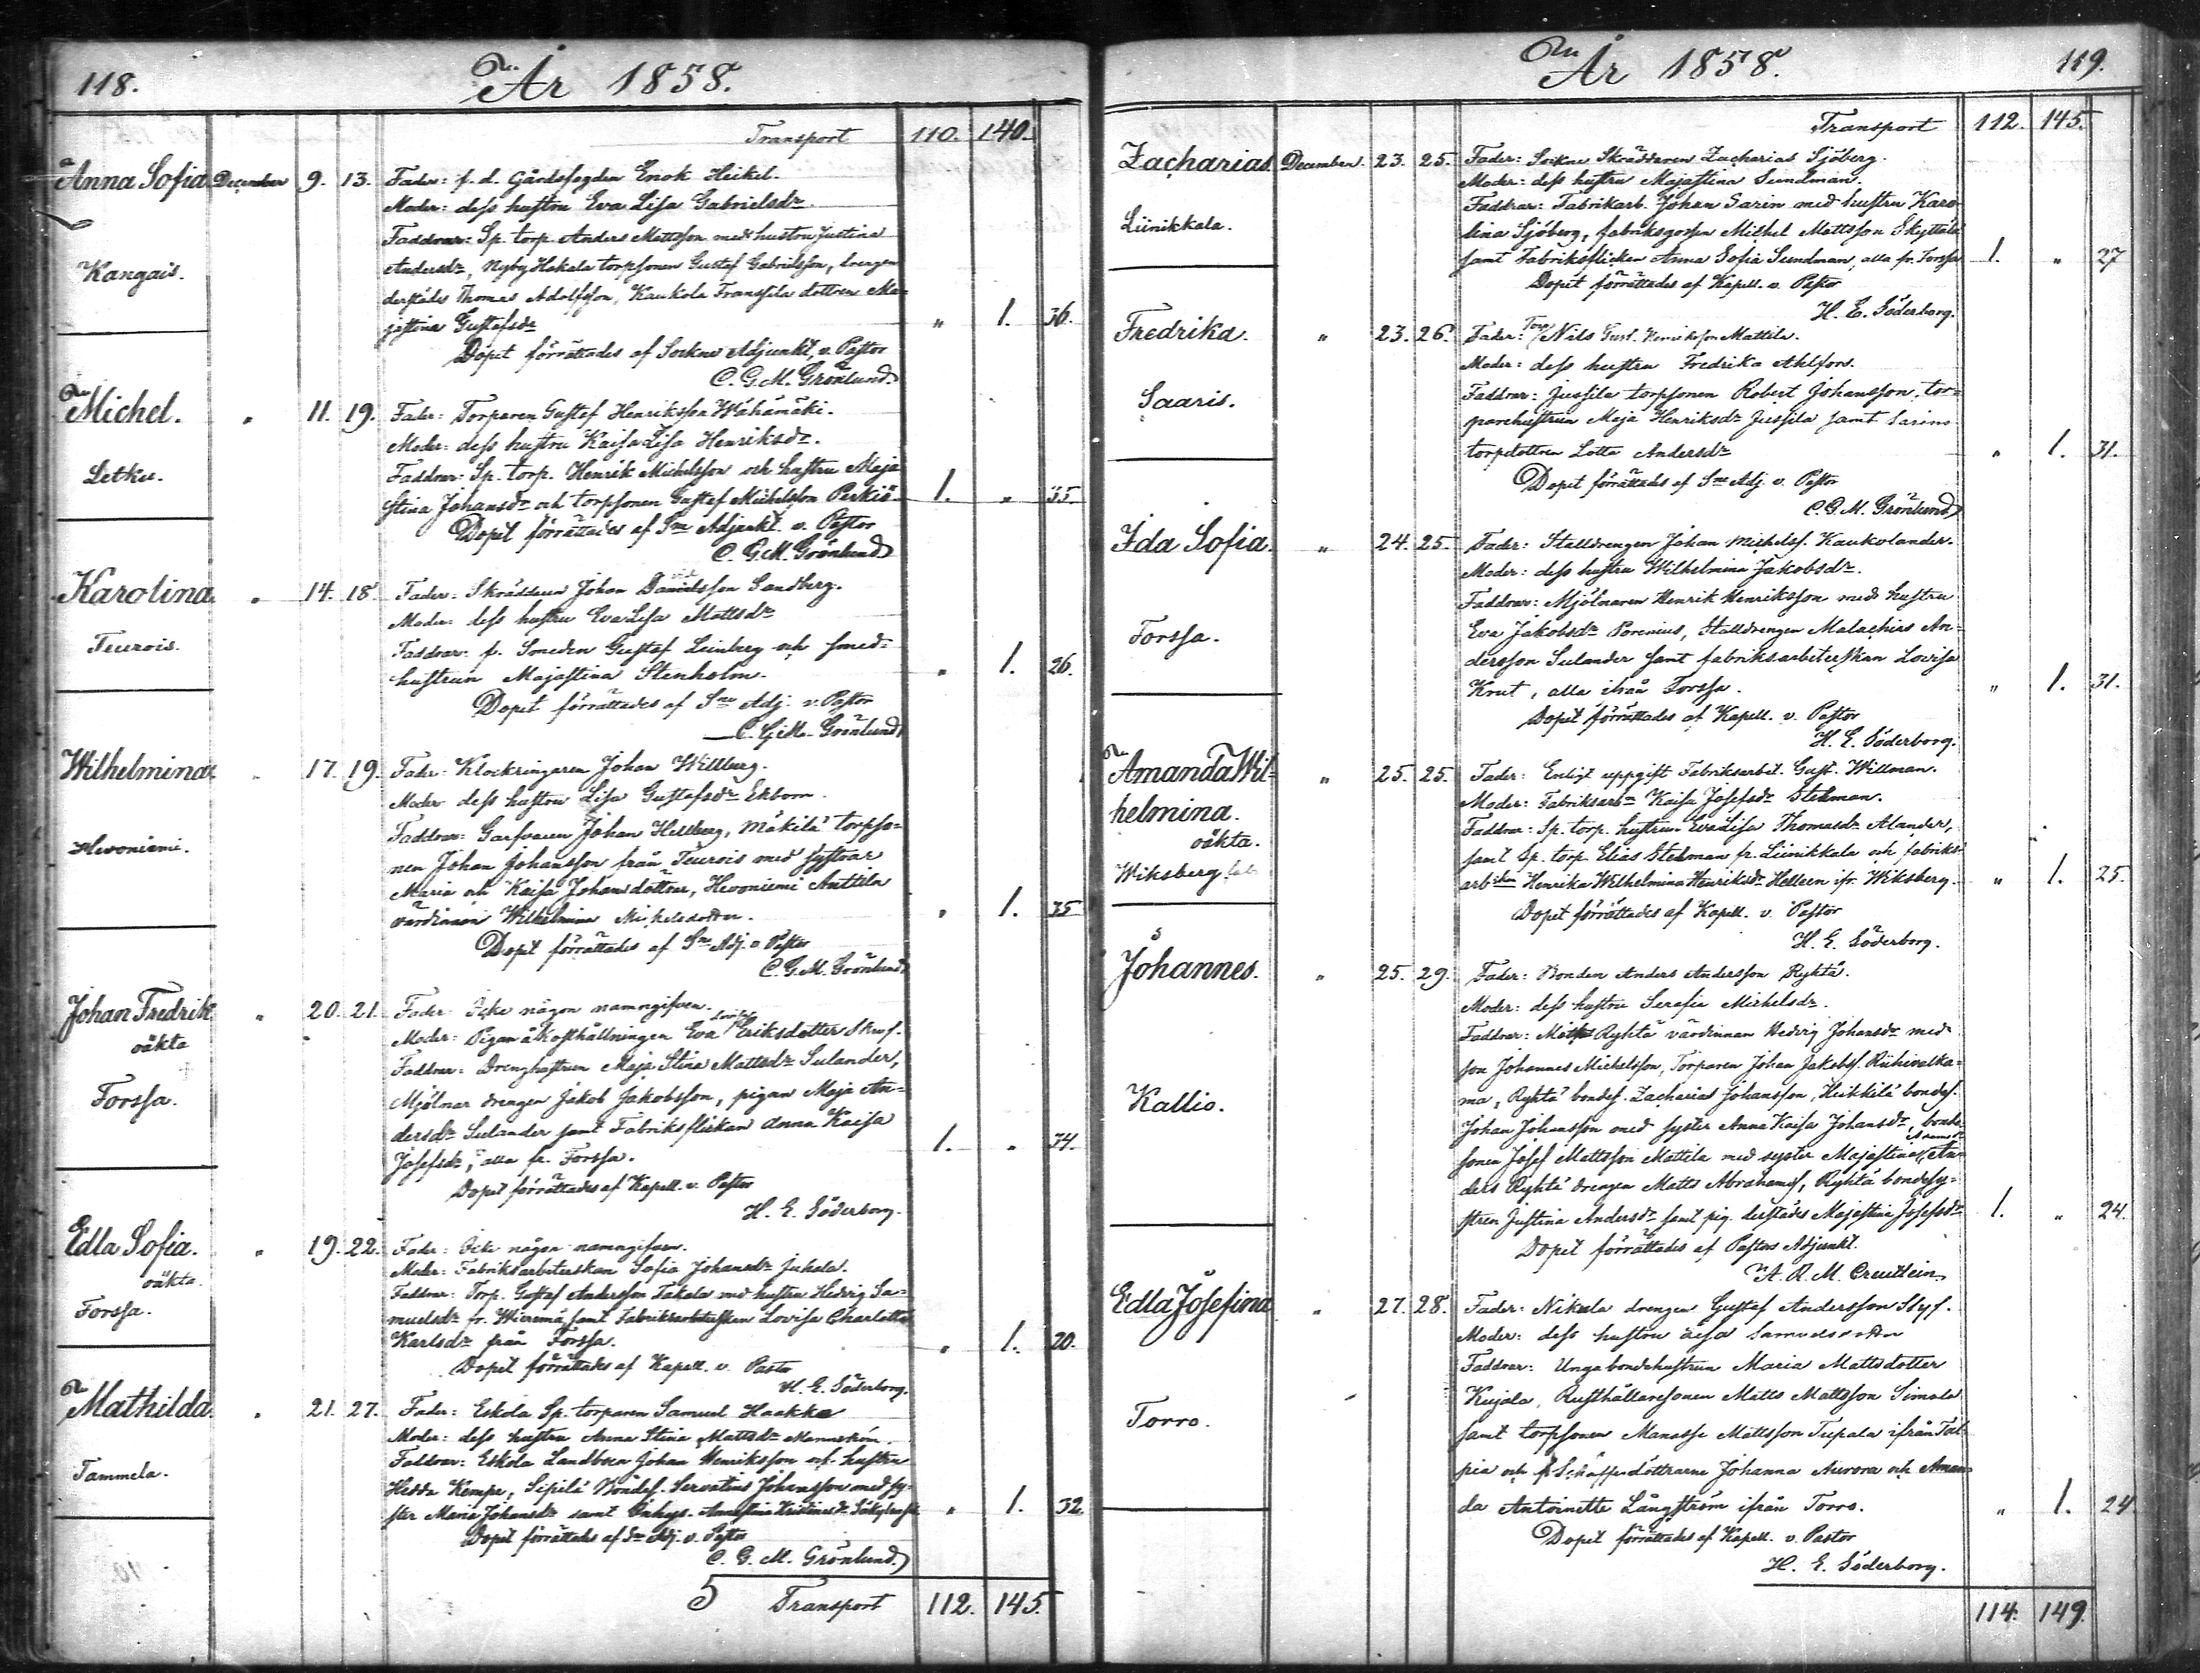 118. År 1858.
Transport 110. 140.
Anna Sofia December 9. 13. Fader: f. d. Gårdsfogden Enok Heikel.
Moder: dess hustru Eva Lisa Gabrielsdr.
Faddrar: Sp. torp. Anders Mattsson med hustru Justina
Kangais. Andersdr, Nyby Hakala torpsonen Gustaf Gabrielsson, drengen
derstädes Thomas Adolfsson, Kaukola Franssila dottren Ma-
jastina Gustafsdr " 1. 36.
Dopet förrättades af Sockne Adjunkt, v. Pastor
C. G. M. Grönlund.
Michel. " 11. 19. Fader: Torparen Gustaf Henriksson Wähämäki.
Moder: dess hustru Kaisa Lisa Henriksdr.
Letku. Faddrar: Sp. torp. Henrik Michelsson och hustru Maja
Stina Johansdr och torpsonen Gustaf Michelsson Perkiö. 1. " 35.
Dopet förrättades af Sne Adjunkt. v. Pastor
C. G. M. Grönlund
Karolina. " 14. 18. Fader: Skräddern Johan Danielsson Sandberg.
Moder: dess hustru Eva Lisa Mattsdr
Teurois. Faddrar: f. Smeden Gustaf Leinberg och smed-
hustrun Majastina Stenholm. " 1. 26.
Dopet förrättades af Sne Adj. v. Pastor
C. G. M. Grönlund
Wilhelmina. " 17. 19. Fader: Klockringaren Johan Willberg.
Moder dess hustru Lisa Gustafsdr Ekbom.
Faddrar: Garfvaren Johan Hellberg, Mäkilä torpso-
Hevoniemi. nen Johan Johansson från Teurois med systrar
Maria och Kaisa Johansdöttrar, Hevoniemi Anttila
värdinnan Wilhelmina Michelsdotter. " 1. 35
Dopet förrättades af Sne Adj. v. Pastor
C. G. M. Grönlund
Johan Fredrik " 20. 21. Fader: Icke någon namngifven.
oäkta Moder: Pigan å Kosthållningen Eva Eriksdotter Skruf.
Faddrar: Drenghustrun Maja Stina Mattsdr Sulander,
Forssa. Mjölnar drengen Jakob Jakobsson, pigan Maja An-
dersdr Sulander samt Fabriksflickan Anna Kaisa
Josefsdr, alla fr. Forssa. 1. " 34.
Dopet förrättades af Kapell. v. Pastor
H. E. Söderborg.
Edla Sofia. " 19. 22. Fader: Icke någon namngifven.
oäkta. Moder: Fabriksarbeterskan Sofia Johansdr Juhola.
Forssa. Faddrar: Torp. Gustaf Andersson Takala med hustru Hedvig Sa-
muelsdr fr. Wieremä samt Fabriksarbeterskan Lovisa Charlotta
Karlsdr från Forssa. " 1. 20.
Dopet förrättades af Kapell. v. Pastor
H. E. Söderborg.
Mathilda. " 21. 27. Fader: Eskola Sp. torparen Samuel Haakka
Moder: dess hustru Anna Stina Mattsdr
Tammela. Faddrar: Eskola Landbon Johan Henriksson och hustru
Hedda Kempe, Sipilä Bondes. Servatius Johansson med sy-
ster Maria Johansdr samt Inhys. " 1. 32.
Dopet förrättades af Sne Adj. v. Pastor
C. G. M. Grönlund.
5 Transport 112. 145.
År 1858. 119.
Transport 112. 145.
Zacharias December. 23. 25. Fader: Sockne Skräddaren Zacharias Sjöberg.
Moder: dess hustru Majastina Sundman.
Liinikkala. Faddrar: Fabrikarb. Johan Sarin med hustru Karo-
lina Sjöberg, fabriksgossen Michel Mattsson Skyttälä
samt Fabriksflickan Anna Sofia Sundman, alla fr. Forssa 1. " 27
Dopet förrättades af Kapell. v. Pastor
H. E. Söderborg.
Fredrika. " 23. 26. Fader: Torp. Nils Gust. Henriksson Mattila.
Moder: dess hustru Fredrika Ahlfors.
Saaris. Faddrar: Jussila torpsonen Robert Johansson, tor-
parehustrun Maja Henriksdr Jussila samt Sarins
torpdottren Lotta Andersdr " 1. 31.
Dopet förrättades af Sne Adj. v. Pastor
C. G. M. Grönlund
Ida Sofia. " 24. 25. Fader: Stalldrengen Johan Michelss. Kaukolander.
Moder: dess hustru Wilhelmina Jakobsdr.
Faddrar: Mjölnaren Henrik Henriksson med hustru
Forssa. Eva Jakobsdr Porenius, Stalldrengen Malachias An-
dersson Sulander samt fabriksarbeterskan Lovisa
Krut, alla ifrån Forssa. " 1. 31.
Dopet förrättades af Kapell. v. Pastor
H. E. Söderborg.
Amanda Wil- " 25. 25. Fader: Enligt uppgift Fabriksarbet. Gust. Willman.
helmina. Moder: Fabriksarbn Kaisa Josefsdr Stekman.
oäkta. Faddrar: Sp. torp. hustrun Eva Lisa Thomasdr Alander,
Wiksberg samt Sp. torp Elias Stekman fr. Liinikkala och fabriks-
arbskan Henrika Wilhelmina Henriksdr Helleen ifr. Wiksberg. " 1. 25.
Dopet förrättades af Kapell. v. Pastor
H. E. Söderborg.
Johannes. " 25. 29. Fader: Bonden Anders Andersson Ryhtä.
Moder: dess hustru Serafia Michelsdr.
Faddrar: Ryhtä värdinnan Hedvig Johansdr med
son Johannes Michelsson, Torparen Johan Jakobss. Riihivalka-
Kallio. ma, Ryhtä bondes. Zacharias Johansson, Heikkilä bondes.
Johan Johansson med syster Anna Kaisa Johansdr, bonde-
sonen Josef Mattsson Mattila med syster Majastina, An-
ders Ryhtä drengen Matts Abrahams, Ryhtä bondesy-
stren Justina Andersdr samt pig. derstädes Majastina Josefsdr 1. " 24.
Dopet förrättades af Pastors Adjunkt.
A. R. M. Creutlein
Edla Josefina " 27. 28. Fader: Nikula drengen Gustaf Andersson Slyf.
Moder: dess hustru Lisa Samuelsdotter
Faddrar: Unga bondehustrun Maria Mattsdotter
Kujala, Rusthållaresonen Matts Mattsson Simola
Torro. samt torpsonen Manasse Mattsson Tupala ifrån Tal-
pia och Schäffersdöttrarne Johanna Aurora och Aman-
da Antoinette Långström ifrån Torro. " 1. 24
Dopet förrättades af Kapell. v. Pastor
H. E. Söderborg.
114. 149.